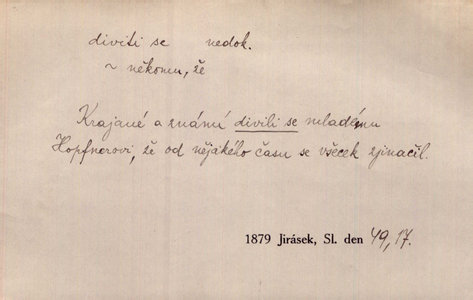 diviti se nedok.
~ někomu, že
Krajané a známí divili se mladému
Hopfnerovi, že od nějakého času se všecek zjinačil.
1879 Jirásek, Sl. den 49, 17.